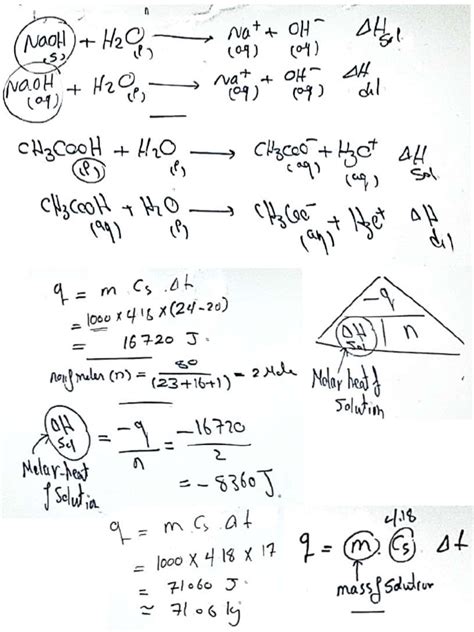 NaOH (s) + H2O (l) ⟶ Na+ (aq) + OH− (aq) ΔH Sol
NaOH (aq) + H2O (l) ⟶ Na+ (aq) + OH− (aq) ΔH dil
CH3COOH (l) + H2O (l) ⟶ CH3COO− (aq) + H3O+ (aq) ΔH Sol
CH3COOH (aq) + H2O (l) ⟶ CH3COO− (aq) + H3O+ (aq) ΔH dil
q = m . Cs . Δt
= 1000 × 4.18 × (24-20)
= 16720 J.
no. of moles (n) = 80 / (23+16+1) = 2 Mole
-q
ΔH Sol | n
Molar heat of Solution
ΔH Sol = -q / n = -16720 / 2
= - 8360 J.
Molar heat of Solution
q = m . Cs . Δt
= 1000 × 4.18 × 17
= 71060 J.
≈ 71.06 kj
4.18
q = m . Cs . Δt
mass of Solution